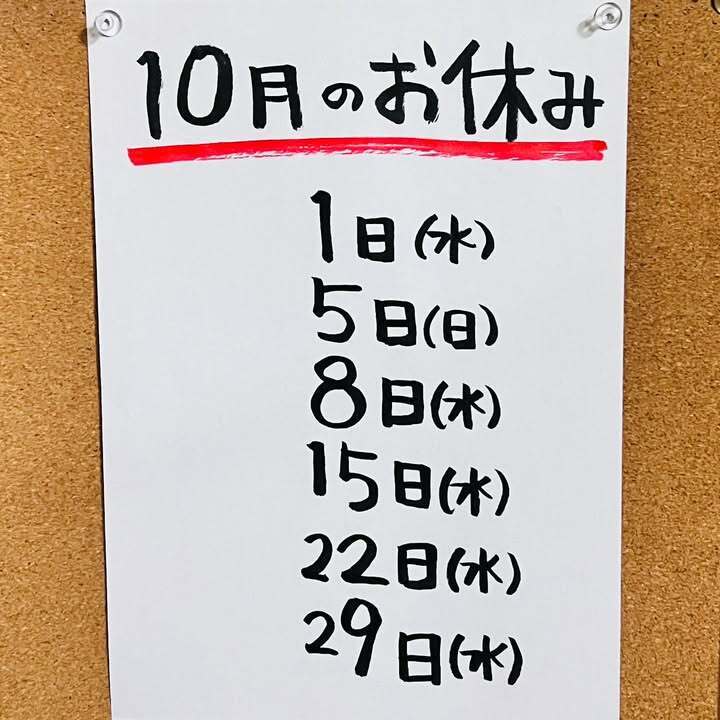 10月のお休み
1日(水)
5日(日)
8日(水)
15日(水)
22日(水)
29日(水)